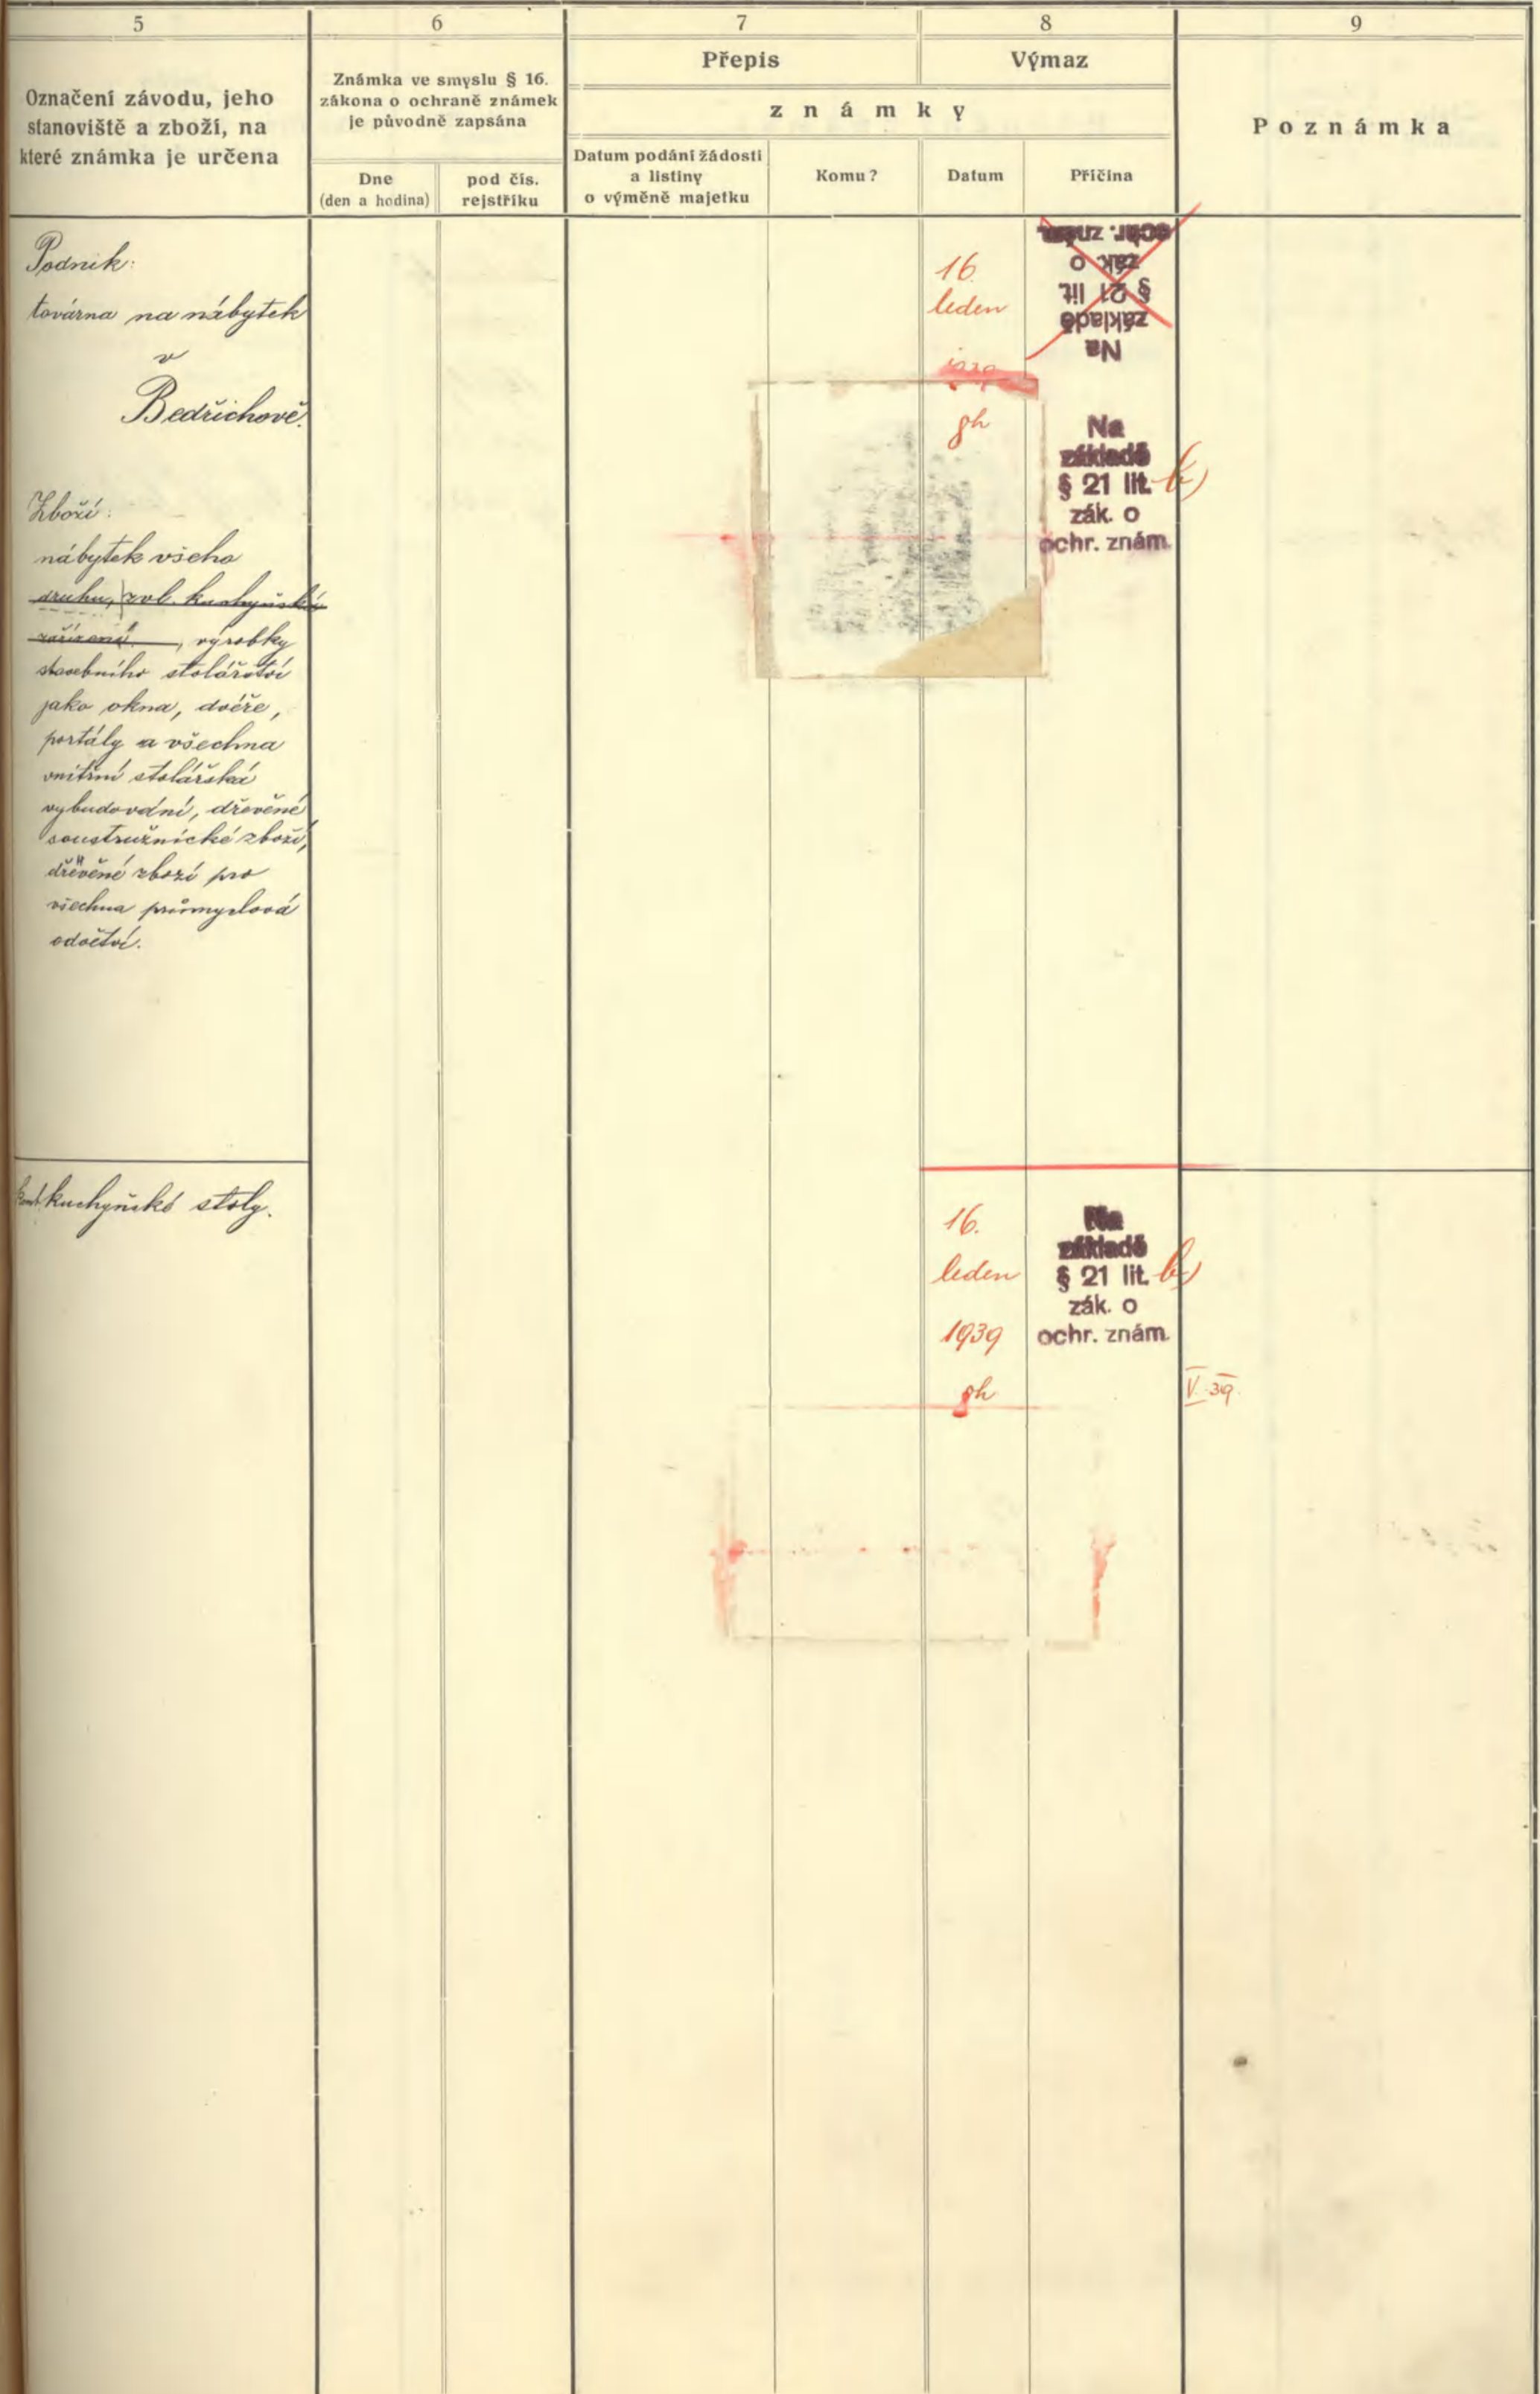 5
6
7
8
9
Označení závodu, jeho
stanoviště a zboží, na
které známka je určena
Známka ve smyslu § 16.
zákona o ochraně známek
je původně zapsána
Dne
(den a hodina)
pod čís.
rejstříku
Přepis
Výmaz
známky
Datum podání žádosti
a listiny
o výměně majetku
Komu?
Datum
Příčina
Poznámka
Podnik:
továrna na nábytek
v
Bedřichově.
Zboží:
nábytek všeho
druhu, zvl. kuchyňská
zařízení, výrobky
stavebního stolářství
jako okna, dvéře,
portály a všechna
vnitřní stolářská
vybudování, dřevěné
soustružnické zboží,
dřevěné zboží pro
všechna průmyslová
odvětví.
16.
leden
1939
gh
Na
základě
§ 21 lit
zák. o
ochr. znám.
Na
základě
§ 21 lit. b)
zák. o
ochr. znám.
kuchyňské stoly.
16.
leden
1939
gh
Na
základě
§ 21 lit. b)
zák. o
ochr. znám.
V. 39.